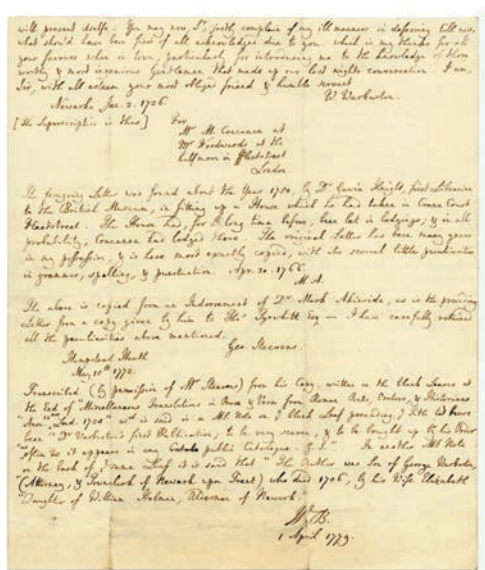 will present itselfe. You may now, Sr, justly complain of my ill manners in deferring till now,
what shou'd have been first of all acknowledged due to you. which is my thanks for all
your favours when in town, particularly for introducing me to the knowledge of those
worthy & most ingenious Gentlemen that made up our last night's conversation. I am,
Sir, with all esteem your most obliged friend & humble servant
W. Warburton.
Newarke Jan. 2. 1726.
[The Superscription is thus] For
Mr M. Concanen at
Mr Woodwards at the
halfmoon in ffleetstreet
London
The foregoing Letter was found about the Year 1750, by Dr Gawin Knight, first Librarian
to the British Museum, in fitting up a House which he had taken in Crane Court
Fleetstreet. The House had, for a long time before, been let in lodgings, & in all
probability, Concanen had lodged there. The original Letter has been many years
in my possession, & is here most exactly copied, with its several little peculiarities
in grammar, spelling, & punctuation. Apr. 30. 1766.
M. A.
The above is copied from an Indorsement of Dr Mark Akinside, as is the preceding
Letter from a copy given by him to Thos Tyrwhitt Esq — I have carefully retained
all the peculiarities above mentioned.
Geo. Steevens.
Hampstead Heath
May 10th 1772.
Transcribed (by permission of Mr Steevens) from his Copy, written on the blank Leaves at
the End of Miscellaneous Translations in Prose & Verse from Roman Poets, Orators, & Historians
Lond. 1724" wch is said in a MS Note on a blank Leaf preceding ye title to have
been "Dr Warburton's first Publication, to be very scarce, & to be bought up by his Order
"often as it appears in any public Catalogue. In another MS Note
on the back of ye same Leaf it is said that "The Author was Son of George Warburton,
(Attorney, & Townclerk of Newark upon Trent) who died 1706, by his Wife Elizabeth
"Daughter of William Holman, Alderman of Newark."
1 April 1779.